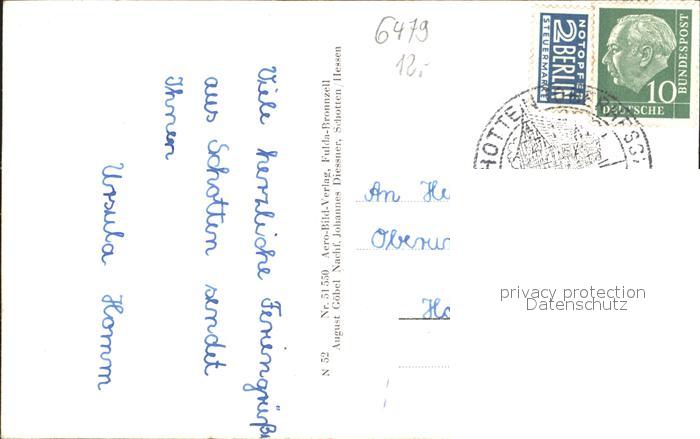 Viele herzliche Feriengrüße
aus Schotten sendet
Ihnen
Ursula Homm
N 52 Nr. 51 550 Aero-Bild-Verlag, Fulda-Bronnzell
August Göbel Nachf. Johannes Diessner, Schotten/Hessen
6479
12,-
NOTOPFER
2 BERLIN
STEUERMARKE
10
DEUTSCHE
BUNDESPOST
An He
Oberur
Ho
privacy protection
Datenschutz